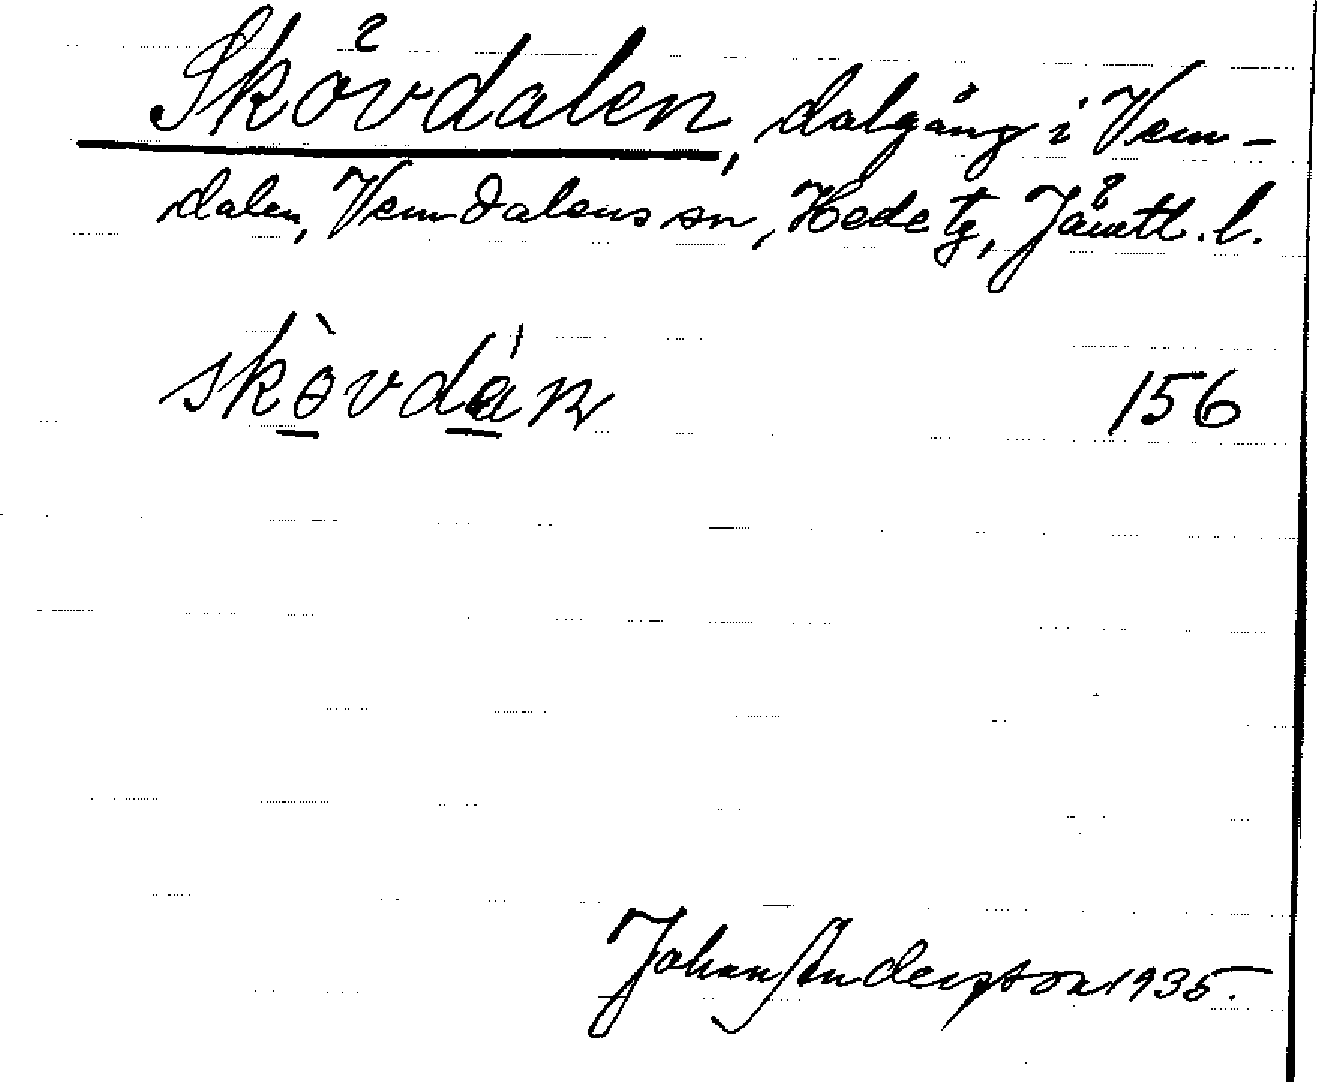 Skövdalen, dalgång i Vem-
dalen, Vemdalens sn, Hede tg, Jämtl. l.
skò̱vdá̱n 156
Johan Anderson 1935.